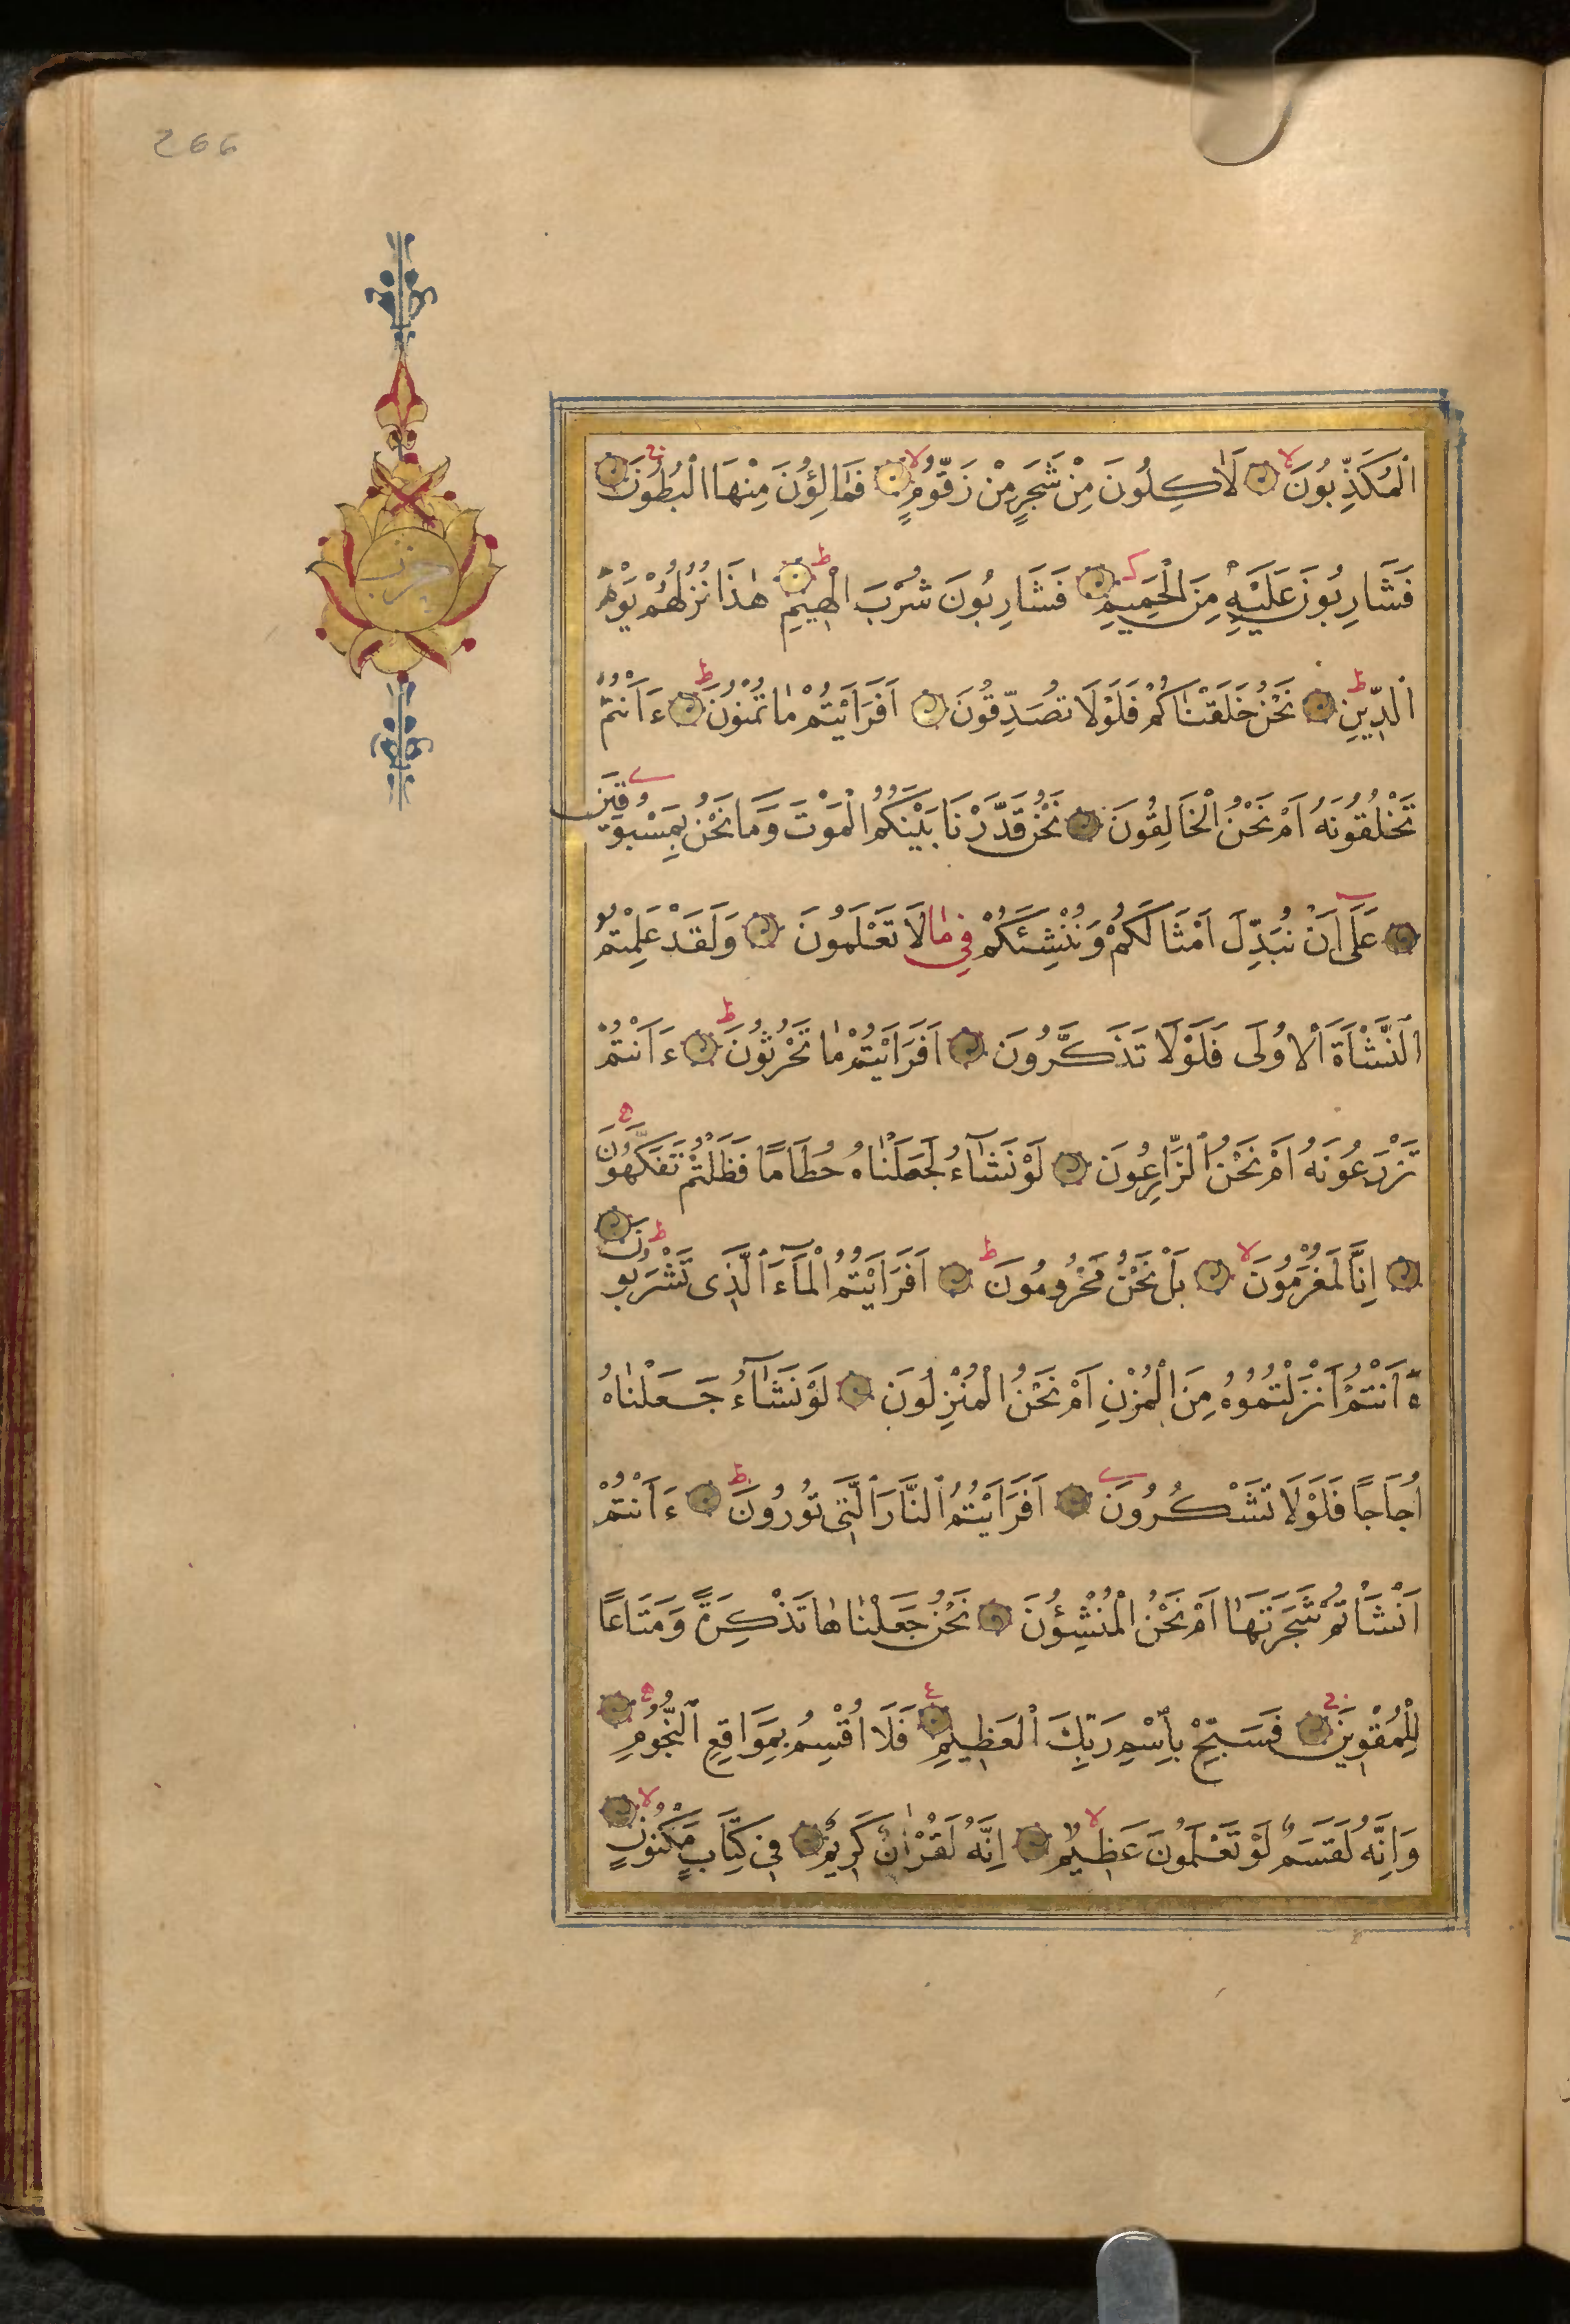 266
حزب
اَلْمُكَذِّبُونَ لَاٰكِلُونَ مِنْ شَجَرٍ مِنْ زَقُّومٍ فَمَالِؤُنَ مِنْهَا الْبُطُونَ
فَشَارِبُونَ عَلَيْهِ مِنَ الْحَمِيمِ فَشَارِبُونَ شُرْبَ الْهِيمِ هٰذَا نُزُلُهُمْ يَوْمَ
اَلدِّينِ نَحْنُ خَلَقْنَاكُمْ فَلَوْلَا تُصَدِّقُونَ اَفَرَاَيْتُمْ مَا تُمْنُونَ ءَاَنْتُمْ
تَخْلُقُونَهُ اَمْ نَحْنُ الْخَالِقُونَ نَحْنُ قَدَّرْنَا بَيْنَكُمُ الْمَوْتَ وَمَا نَحْنُ بِمَسْبُوقِينَ
عَلَى اَنْ نُبَدِّلَ اَمْثَالَكُمْ وَنُنْشِئَكُمْ فِي مَا لَا تَعْلَمُونَ وَلَقَدْ عَلِمْتُمُ
النَّشْاَةَ الْاُولَى فَلَوْلَا تَذَكَّرُونَ اَفَرَاَيْتُمْ مَا تَحْرُثُونَ ءَاَنْتُمْ
تَزْرَعُونَهُ اَمْ نَحْنُ الزَّارِعُونَ لَوْ نَشَاءُ لَجَعَلْنَاهُ حُطَامًا فَظَلْتُمْ تَفَكَّهُونَ
اِنَّا لَمُغْرَمُونَ بَلْ نَحْنُ مَحْرُومُونَ اَفَرَاَيْتُمُ الْمَاءَ الَّذِى تَشْرَبُونَ
ءَاَنْتُمْ اَنْزَلْتُمُوهُ مِنَ الْمُزْنِ اَمْ نَحْنُ الْمُنْزِلُونَ لَوْ نَشَاءُ جَعَلْنَاهُ
اُجَاجًا فَلَوْلَا تَشْكُرُونَ اَفَرَاَيْتُمُ النَّارَ الَّتِى تُورُونَ ءَاَنْتُمْ
اَنْشَاْتُمْ شَجَرَتَهَا اَمْ نَحْنُ الْمُنْشِؤُنَ نَحْنُ جَعَلْنَاهَا تَذْكِرَةً وَمَتَاعًا
لِلْمُقْوِينَ فَسَبِّحْ بِاسْمِ رَبِّكَ الْعَظِيمِ فَلَا اُقْسِمُ بِمَوَاقِعِ النُّجُومِ
وَاِنَّهُ لَقَسَمٌ لَوْ تَعْلَمُونَ عَظِيمٌ اِنَّهُ لَقُرْاٰنٌ كَرِيمٌ فِى كِتَابٍ مَكْنُونٍ